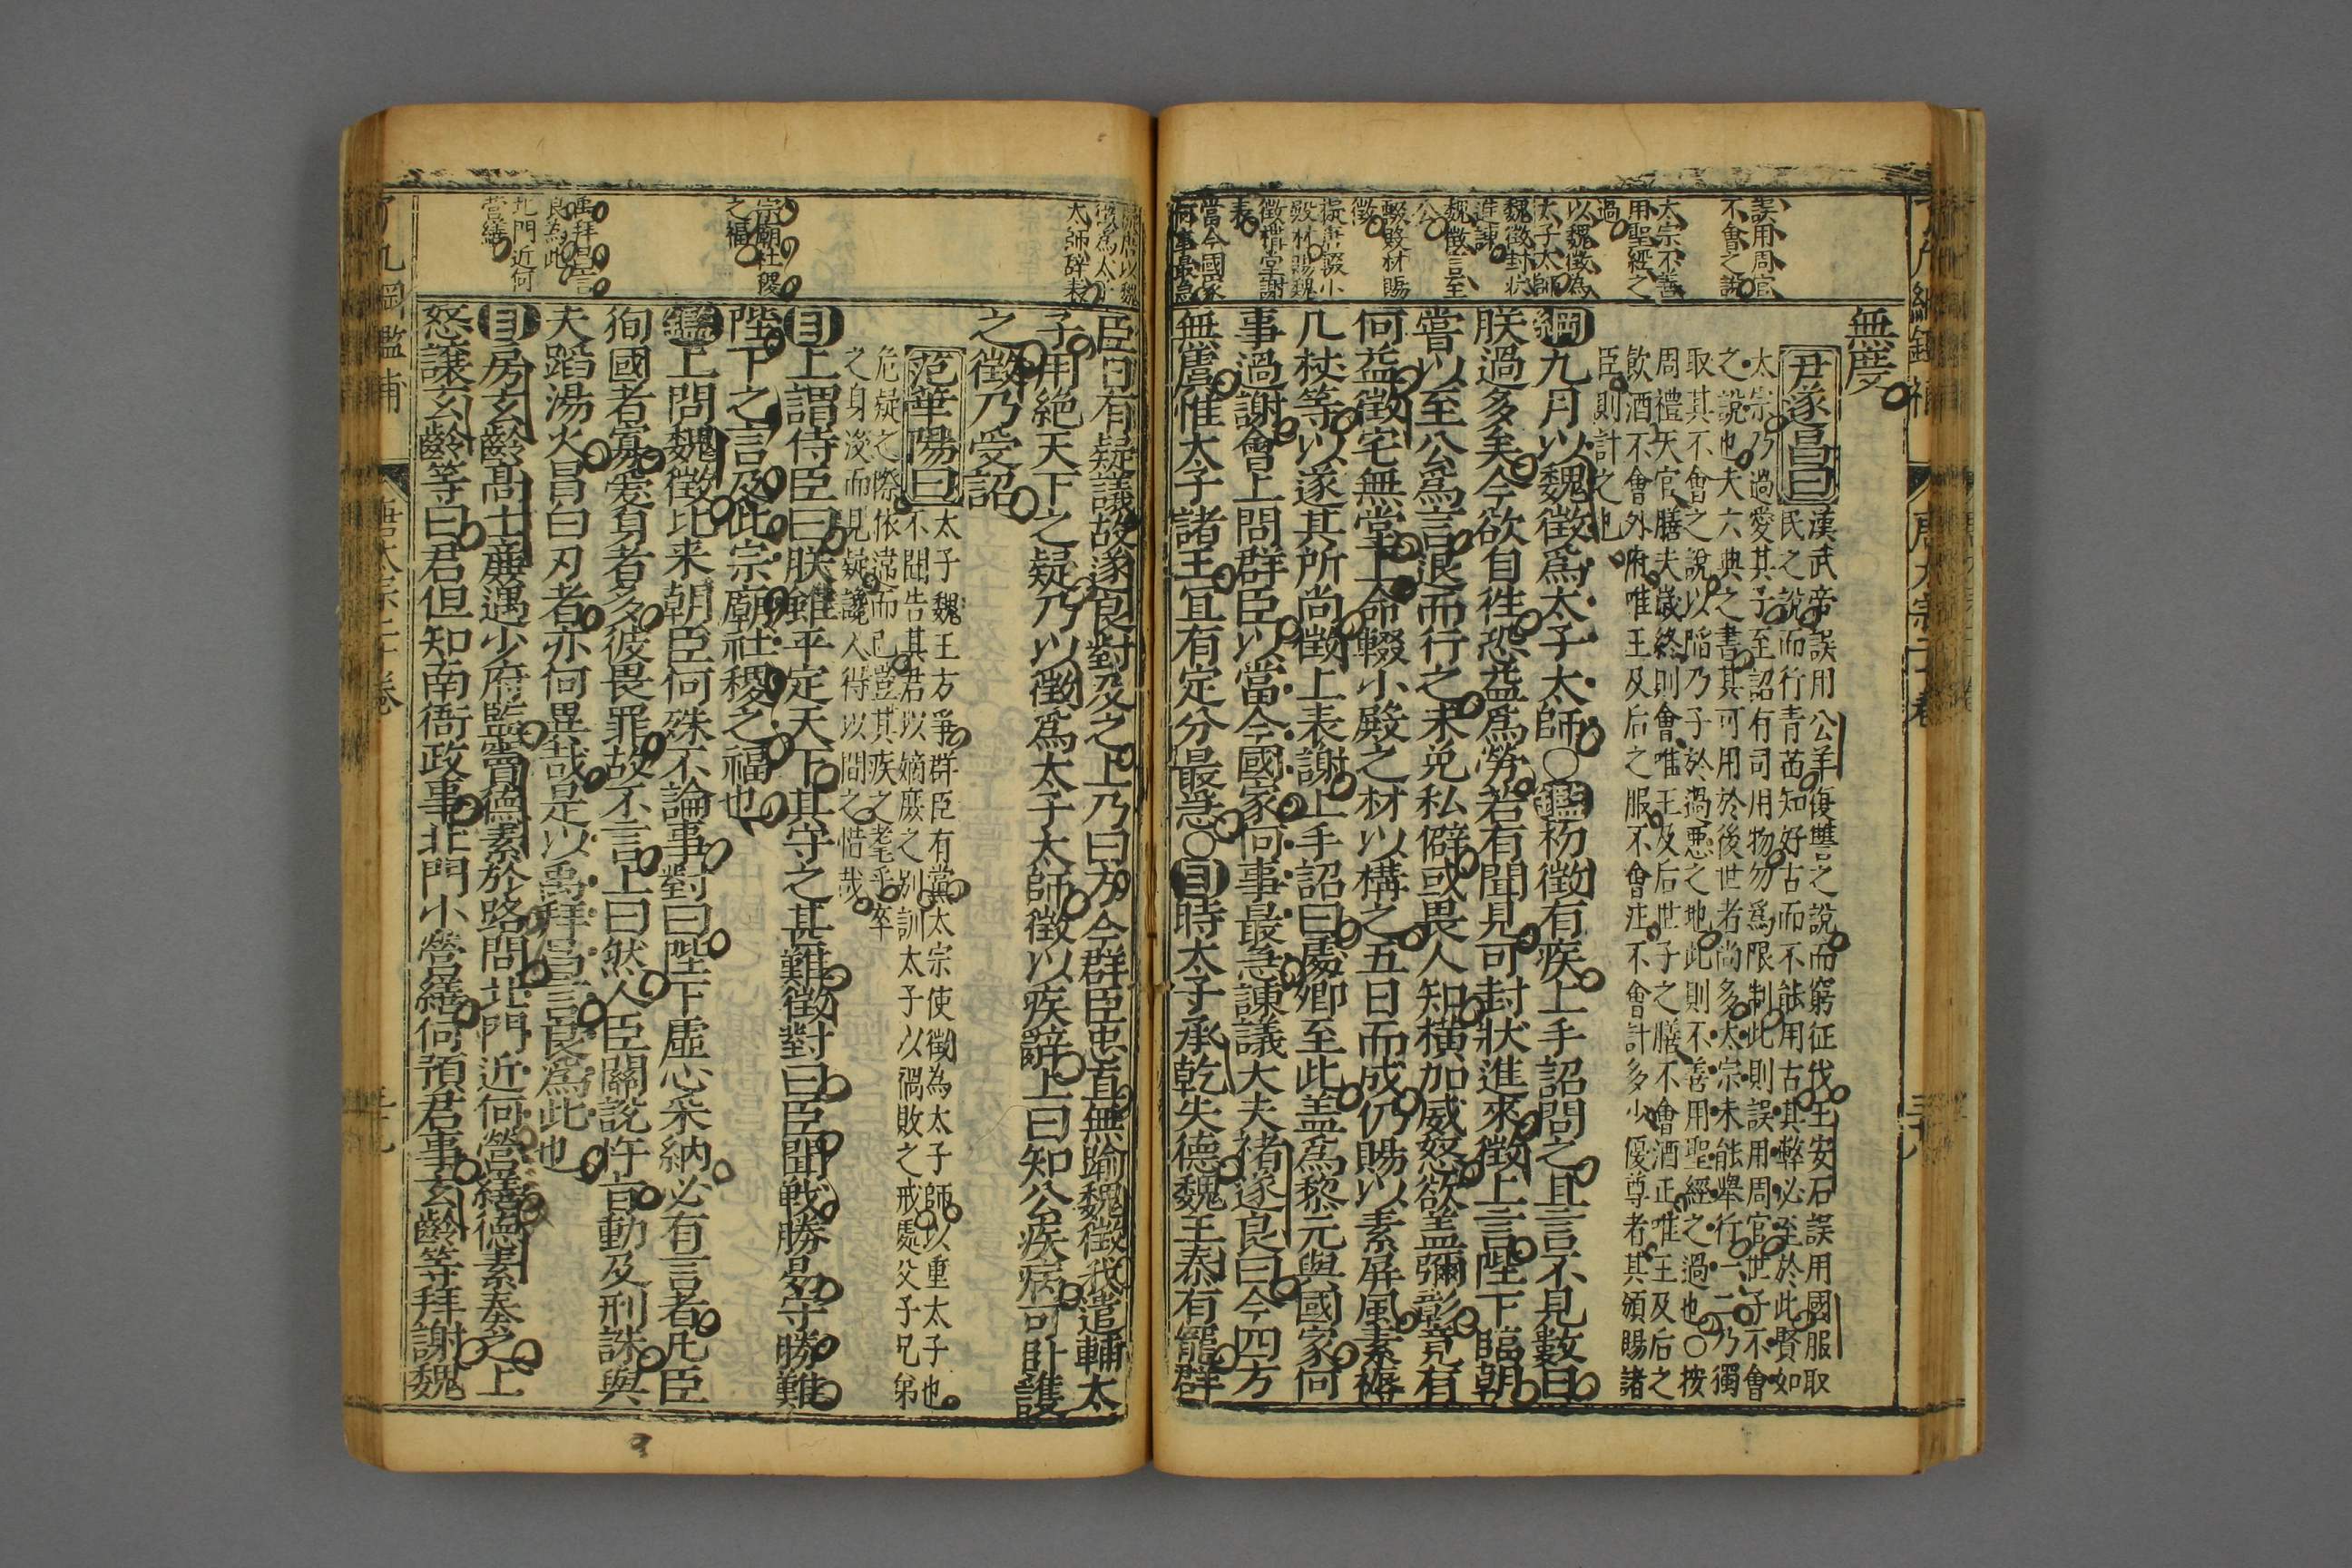 誤用周官
不會之說
太宗不善
用聖經之
過
以魏徵為
太子太師
魏徵封狀
進諫
魏徵言至
公
輟殿材賜
徵
徵構堂謝
表
當今國家
何事最急
無度
尹遂昌曰
漢武帝誤用公羊復讐之說而窮征伐王安石誤用國服取
民之說而行青苗知好古而不能用古其弊必至於此賢如
太宗乃過愛其子至詔有司用物勿爲限制此則誤用周官世子不會
之說也夫六典之書其可用於後世者尚多太宗未能舉行一二乃獨
取其不會之說以陷乃子於過惡之地此則不善用聖經之過也○按
周禮天官膳夫歲終則會唯王及后世子之膳不會酒正唯王及后之
飲酒不會外府唯王及后之服不會注不會計多少優尊者其頒賜諸
臣則計之也
綱九月以魏徵爲太子太師○鑑初徵有疾上手詔問之且言不見數日
朕過多矣今欲自往恐益爲勞若有聞見可封狀進來徵上言陛下臨朝
嘗以至公爲言退而行之未免私僻或畏人知橫加威怒欲盖彌彰竟有
何益徵宅無堂上命輟小殿之材以構之五日而成仍賜以素屏風素褥
几杖等以遂其所尚徵上表謝上手詔曰處卿至此盖爲黎元與國家何
事過謝會上問群臣以當今國家何事最急諫議大夫褚遂良曰今四方
無虞惟太子諸王宜有定分最急○目時太子承乾失德魏王泰有寵群
太師辭表
宗廟社稷
之福
禹拜昌言
良為此
北門近何
營繕
臣日有疑議故遂良對及之上乃曰方今群臣忠直無踰魏徵我遣輔太
子用絶天下之疑乃以徵爲太子太師徵以疾辭上曰知公疾病可卧護
之徵乃受詔
范華陽曰
太子魏王方爭群臣有黨太宗使徵為太子師以重太子也
不聞告其君以嫡庶之别訓太子以禍敗之戒處父子兄弟
危疑之際依違而已豈其疾之耄乎卒
之身没而見疑讒人得以間之惜哉
目上謂侍臣曰朕雖平定天下其守之甚難徵對曰臣聞戰勝易守勝難
陛下之言及此宗廟社稷之福也
鑑上問魏徵比来朝臣何殊不論事對曰陛下虛心采納必有言者凡臣
狥國者寡愛身者多彼畏罪故不言上曰然人臣關說忤㫖動及刑誅與
夫蹈湯火冒白刃者亦何異哉是以禹拜昌言良爲此也
目房玄齡高士廉遇少府監竇德素於路問北門近何營繕德素奏之上
怒讓玄齡等曰君但知南衙政事北門小營繕何預君事玄齡等拜謝魏